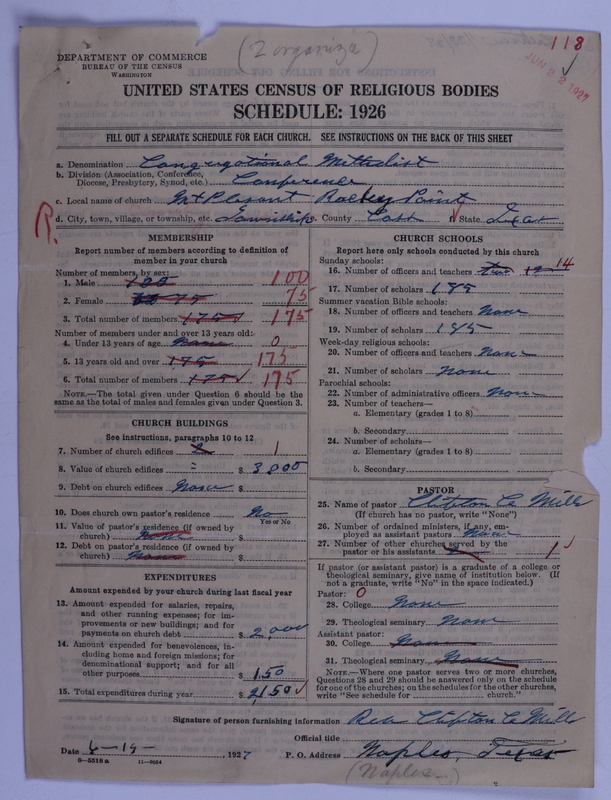 (2 organiza)
118
DEPARTMENT OF COMMERCE
BUREAU OF THE CENSUS
WASHINGTON
JUN 22 1927
UNITED STATES CENSUS OF RELIGIOUS BODIES
SCHEDULE: 1926
FILL OUT A SEPARATE SCHEDULE FOR EACH CHURCH. SEE INSTRUCTIONS ON THE BACK OF THIS SHEET
a. Denomination Congregational Methodist
b. Division (Association, Conference, Diocese, Presbytery, Synod, etc.) Conference
c. Local name of church Mt Pleasant Rocky Point
R.
d. City, town, village, or township, etc. Township e. County Cass f. State Texas
MEMBERSHIP
Report number of members according to definition of
member in your church
Number of members, by sex:
1. Male 100 100
2. Female 75 75
3. Total number of members 175 175
Number of members under and over 13 years old:
4. Under 13 years of age none 0
5. 13 years old and over 175 175
6. Total number of members 175 175
NOTE.—The total given under Question 6 should be
same as the total of males and females given under Question 3.
CHURCH BUILDINGS
See instructions, paragraphs 10 to 12
7. Number of church edifices 2 1
8. Value of church edifices $ 3,000
9. Debt on church edifices None $
10. Does church own pastor's residence No
Yes or No
11. Value of pastor's residence (if owned by
church) None $
12. Debt on pastor's residence (if owned by
church) None $
EXPENDITURES
Amount expended by your church during last fiscal year
13. Amount expended for salaries, repairs,
and other running expenses; for im-
provements or new buildings; and for
payments on church debt $ 2,000
14. Amount expended for benevolences, in-
cluding home and foreign missions; for
denominational support; and for all
other purposes $ 150
15. Total expenditures during year $ 2150
CHURCH SCHOOLS
Report here only schools conducted by this church
Sunday schools:
16. Number of officers and teachers 14
17. Number of scholars 185
Summer vacation Bible schools:
18. Number of officers and teachers None
19. Number of scholars 185
Week-day religious schools:
20. Number of officers and teachers None
21. Number of scholars None
Parochial schools:
22. Number of administrative officers None
23. Number of teachers—
a. Elementary (grades 1 to 8)
b. Secondary
24. Number of scholars—
a. Elementary (grades 1 to 8)
b. Secondary
PASTOR
25. Name of pastor Clifton C Mills
(If church has no pastor, write "None")
26. Number of ordained ministers, if any, em-
ployed as assistant pastors None
27. Number of other churches served by the
pastor or his assistants 1
If pastor (or assistant pastor) is a graduate of a college or
theological seminary, give name of institution below. (If
not a graduate, write "No" in the space indicated.)
Pastor: 0
28. College None
29. Theological seminary None
Assistant pastor:
30. College None
31. Theological seminary None
NOTE.—Where one pastor serves two or more churches,
Questions 28 and 29 should be answered only on the schedule
for one of the churches; on the schedules for the other churches,
write "See schedule for church."
Signature of person furnishing information Rev Clifton C Mills
Official title
Date 6-19-, 1927 P. O. Address Naples, Texas
8—5518 a 11—9084
(Naples)